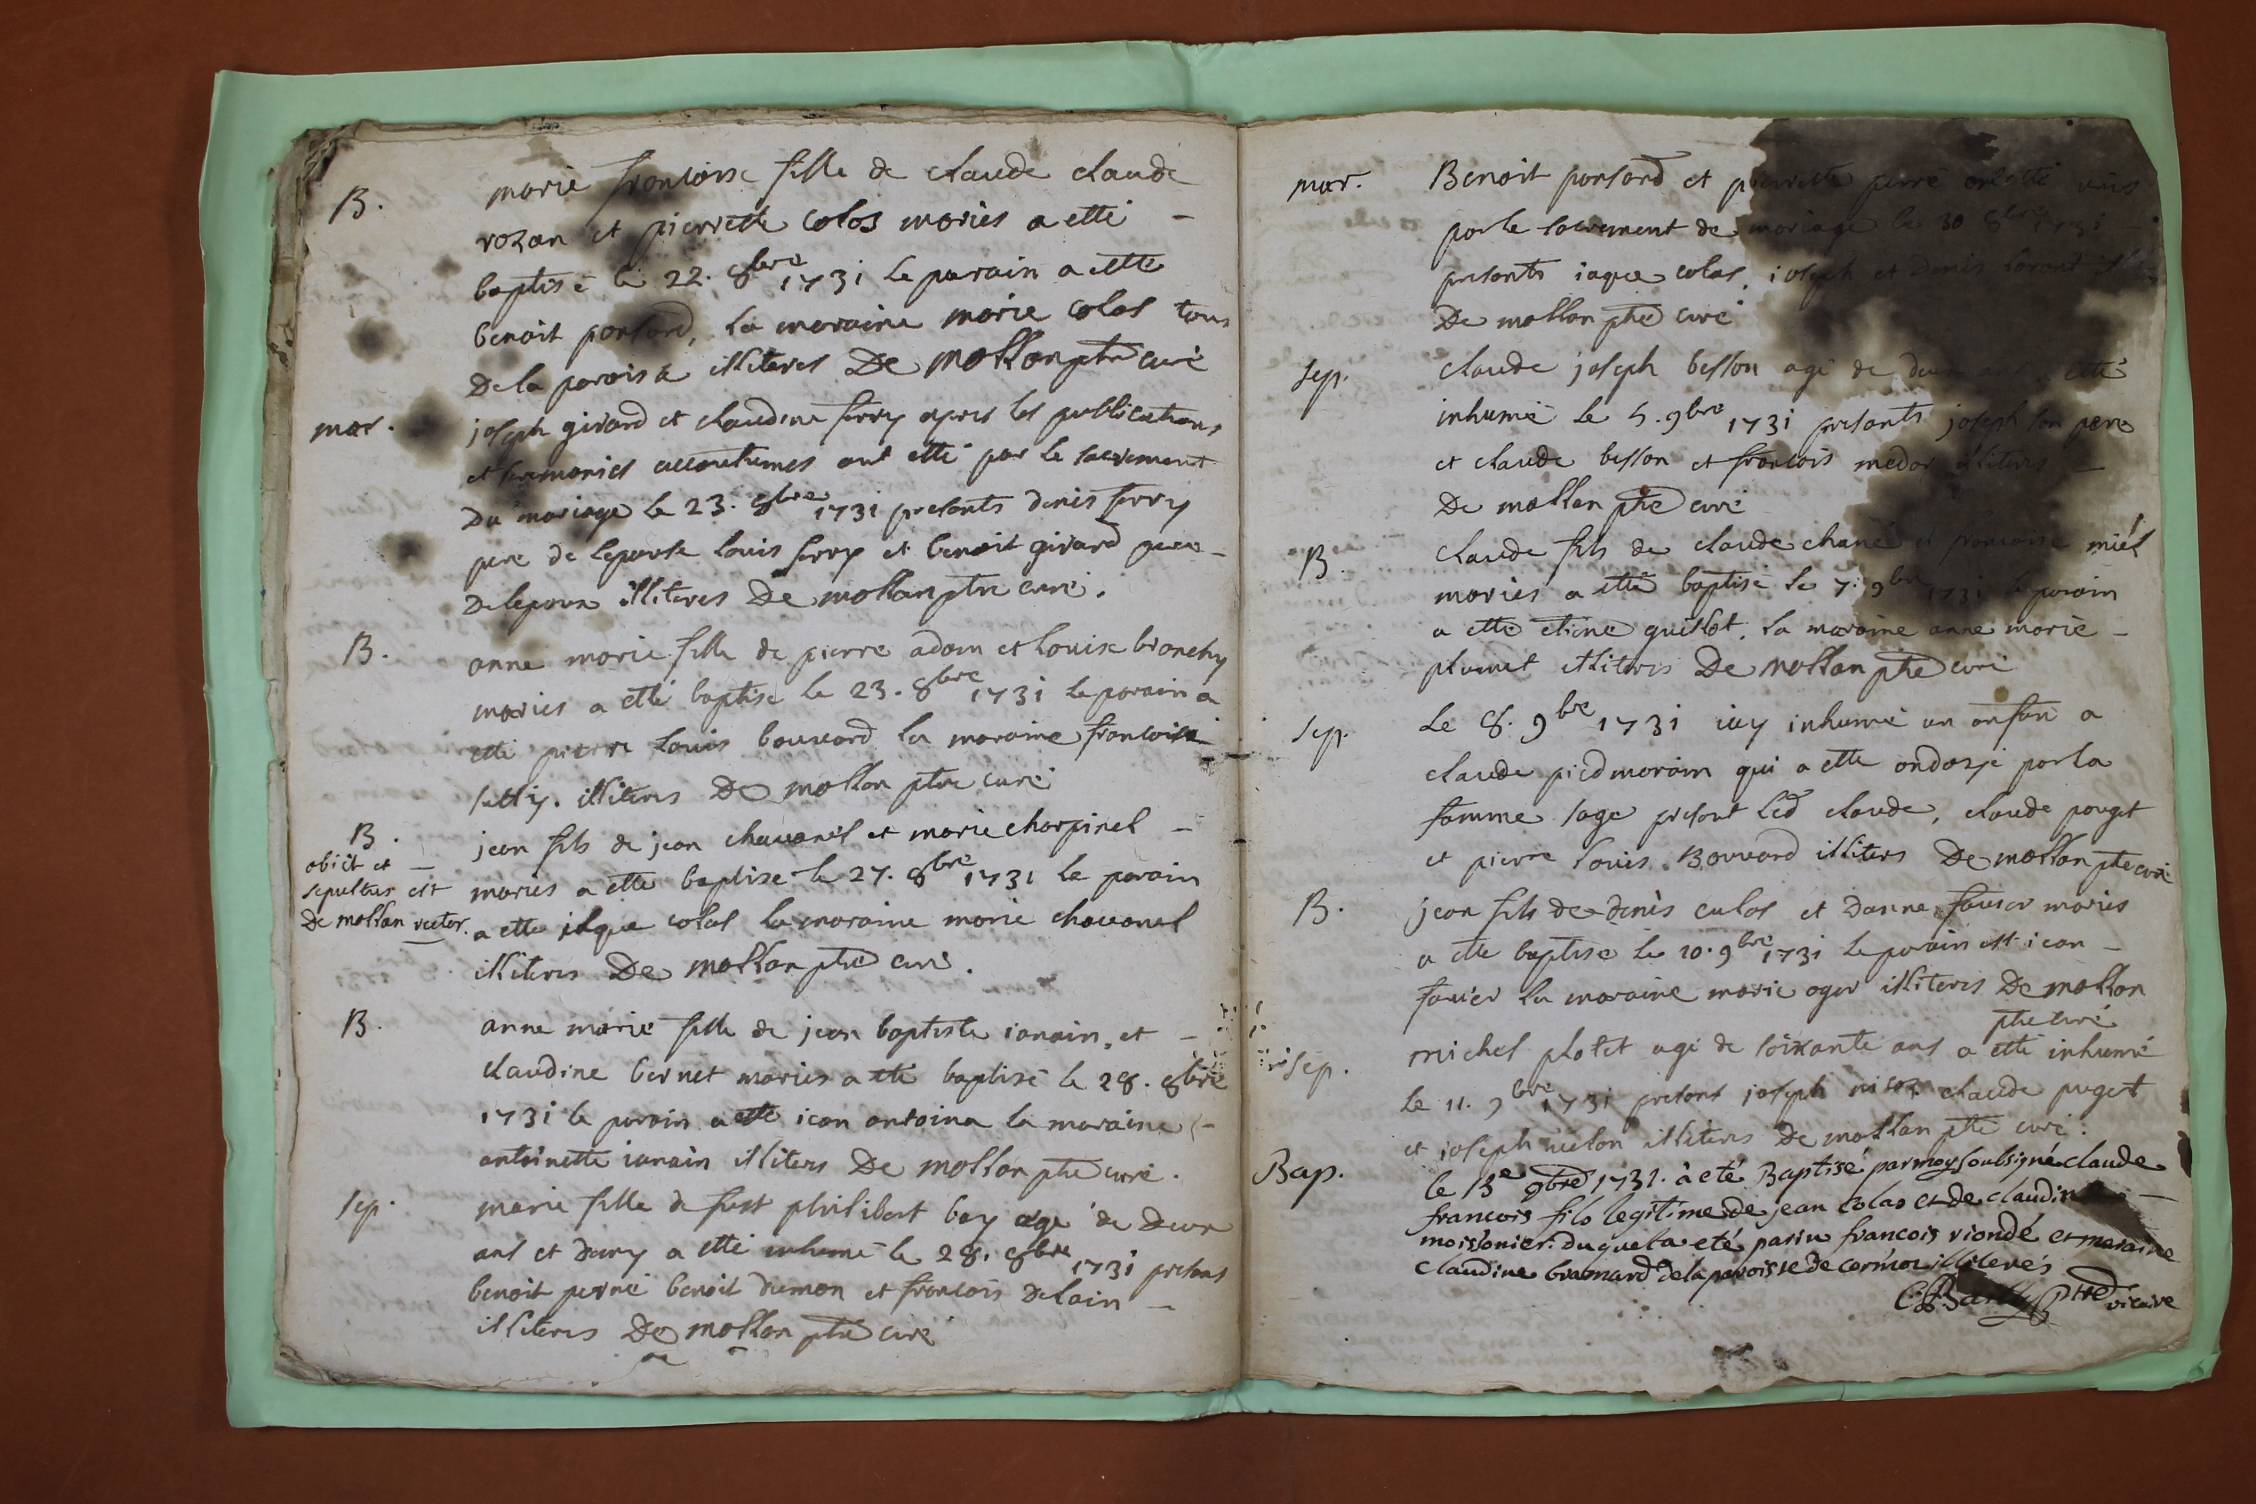 B.
marie francoise fille de claude claude
rozan et pierrette colas maries a etté -
baptisé le 22. 8bre 1731 le parain a etté
benoit ponsard, la maraine marie colas tous
De la paroisse illiteres De mollan ptre curé
mar.
joseph girard et claudine ferry apres les publications
et seremonies accoutumes ont etté par le sacrement
Du mariage le 23. 8bre 1731 presants denis ferry
pere de lepouse louis ferry et benoit girard pere -
De lepoux illiteres De mollan ptre curé.
B.
anne marie fille de pierre adam et louise branchy
maries a etté baptisé le 23. 8bre 1731 le parain a
etté pierre louis bouvard la maraine francoise
illiteres De mollan ptre curé
B.
obiit et -
sepultus est
De mollan rector.
jean fils de jean chavanel et marie charpinel -
maries a etté baptise le 27. 8bre 1731 le parain
a etté iaque colas la maraine marie chavanel
illiteres De mollan ptre curé.
B.
anne marie fille de jean baptiste ianain, et -
claudine bernet maries a eté baptisé le 28. 8bre
1731 le parain a etté iean antoina la maraine -
antoinette ianain illiteres De mollan ptre curé.
sep.
marie fille de fust philibert bay agé de Deux
ans et Demy a etté inhumé le 28. 8bre 1731 presans
benoit perné benoit dumon et francois Delain -
illiteres De mollan ptre curé
mar.
Benoit ponsard et pierrette unis
par le sacrement de mariage le 30 8bre 1731
presants iaque colas, ioseph et Denis
De mollan ptre curé
sep.
claude joseph besson agé de etté
inhumé le 5. 9bre 1731 presants joseph son pere
et claude besson et francois medar illiteres -
De mollan ptre curé
B
claude fils de claude chané et francoise miel
maries a etté baptisé le 7. 9bre 1731 le parain
a etté etiene guillot. la maraine anne marie -
plumet illiteres De mollan ptre curé
sep.
Le 8. 9bre 1731 iay inhumé un anfan a
claude piedmorain qui a etté ondoyé par la
famme sage presant led claude, claude pouget
et pierre louis Bouvard illiters De mollan ptre curé
B.
jean fils de denis culas et Danne favier maries
a etté baptisé le 10. 9bre 1731 le parain est iean -
favier la maraine marie oger illiteres De mollan
ptre curé
sep.
michel plotet agé de soixante ans a etté inhumé
le 11. 9bre 1731 presans joseph nison claude puget
et ioseph illiteres De mollan ptre curé.
Bap.
le 13e 9bre 1731. à eté Baptisé par moy soubsigné claude
francois fils legitime de jean colas et de claudine -
moissonier. duquel a eté parin francois riondé et maraine
claudine bramard de la paroisse de cormoz illiterés
ptre vicaire